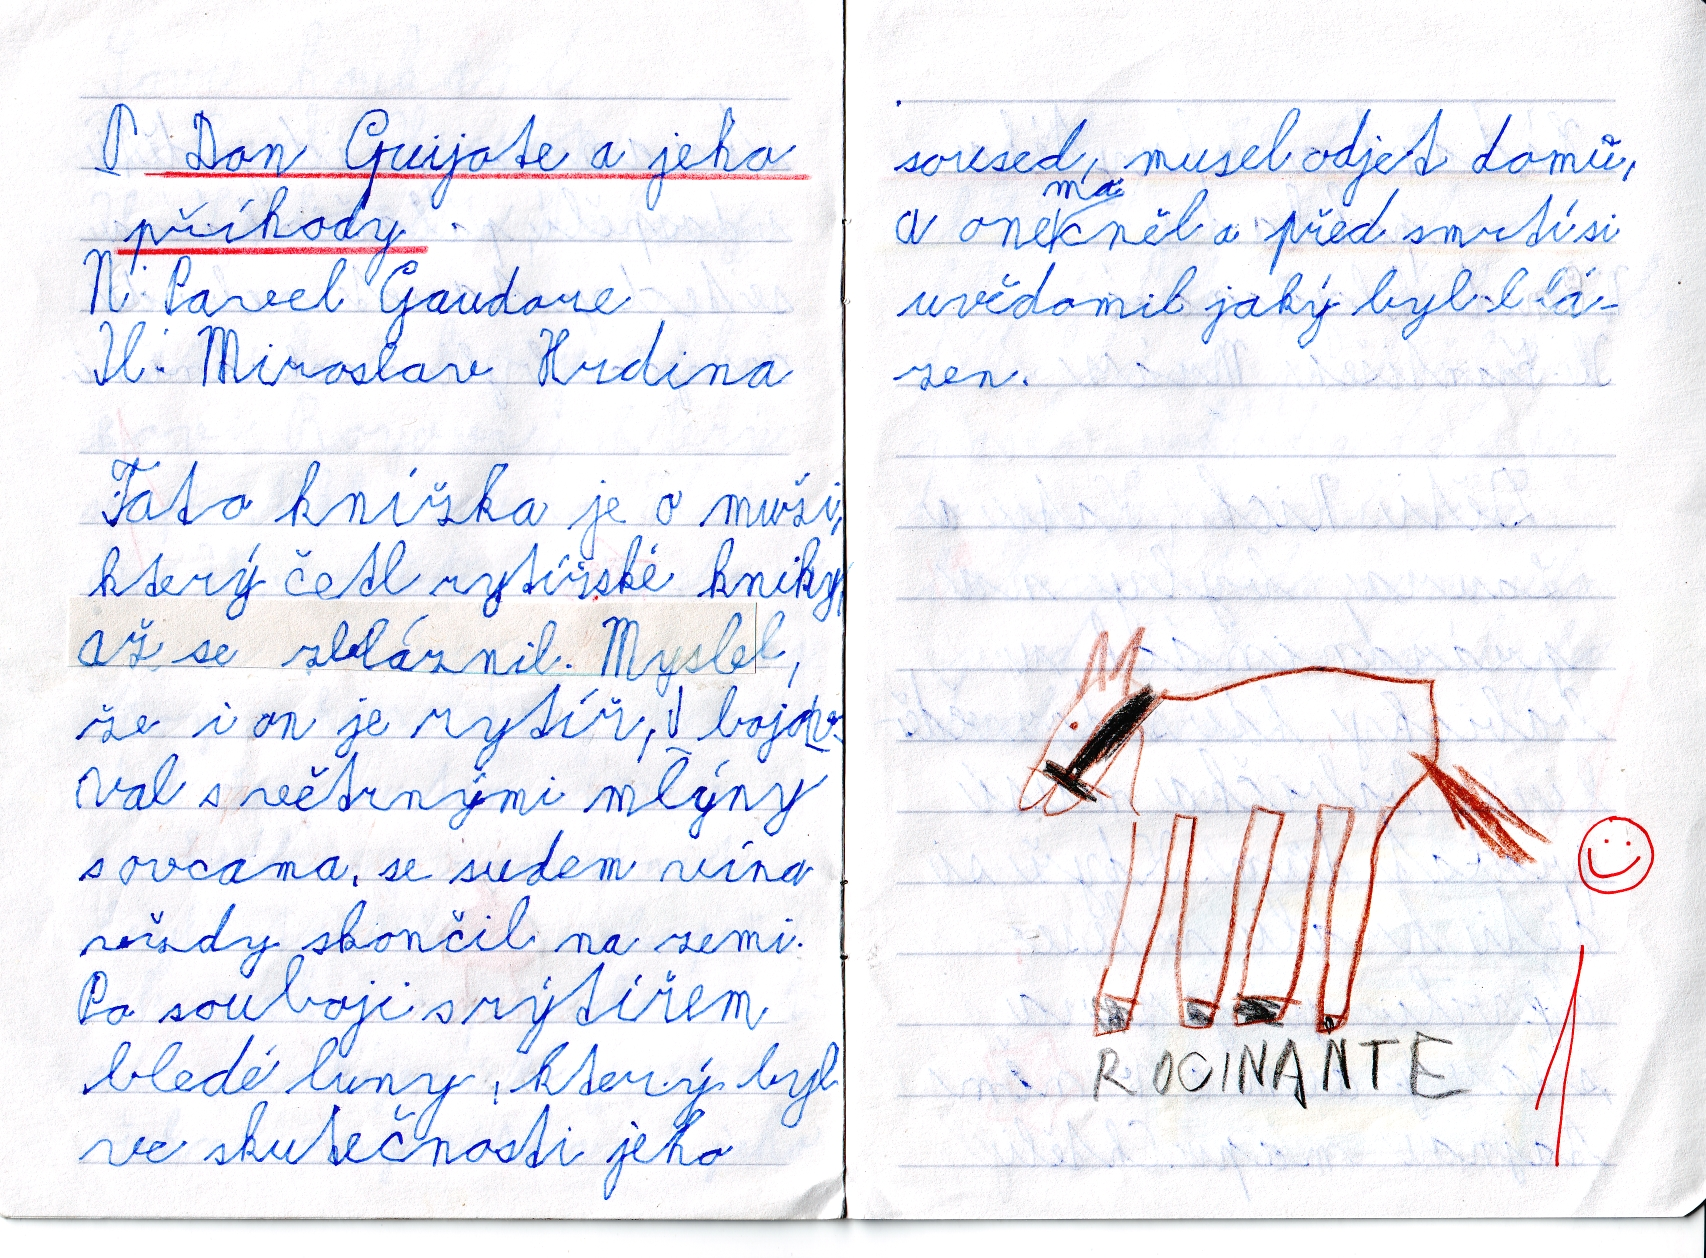 P Don Guijote a jeho
příhody.
N: Pavel Gaudore
Il: Miroslav Hrdina
Tato knížka je o muži,
který četl rytířské kniky,
až se zbláznil. Myslel,
že i on je rytíř, bojo-
val s větrnými mlýny
s ovcama, se sudem vína
vždy skončil na zemi.
Po souboji s rýtířem
bledé luny, který byl
ve skutečnosti jeho
soused, musel odjet domů,
a one mo cněl a před smrtí si
uvědomil jaký byl blá-
zen.
ROCINANTE
1